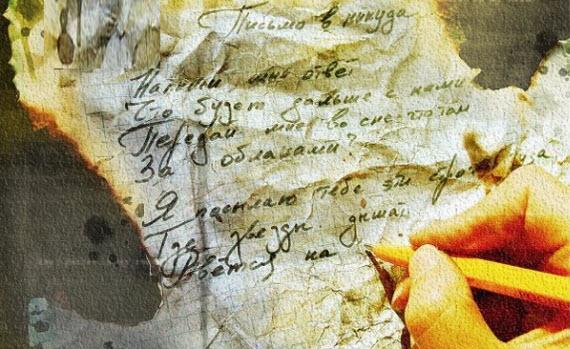 Письмо в никуда
Напиши мне ответ
Что будет дальше с нами
Передай мне во сне что там
За облаками?
Я посылаю тебе эти строки
Где звезды дышат
Рвётся на